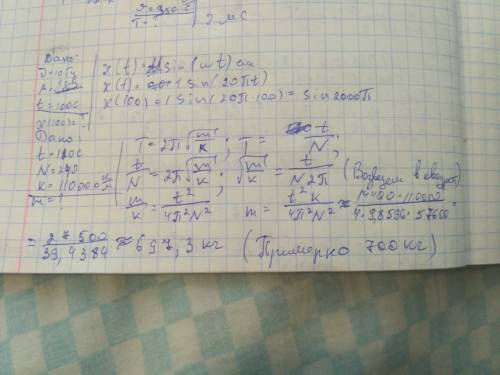 T = ?
2 мс
Дано:
t = 100с
x(100) = ?
x(t) = sin(ωt) см
x(t) = 1 sin(20πt)
x(100) = 1 sin(20π·100) = sin 2000π
Дано:
N = 240
k = 110000 Н/м
m = ?
T = 2π√m/k; T = t/N;
t/N = 2π√m/k; √m/k = t/N2π (Возведем в квадрат)
m/k = t²/4π²N² m = t²k/4π²N² ≈ 14400·110000/4·9,8596·57600 =
= 27500/39,4384 ≈ 697,3 кг (Примерно 700 кг)